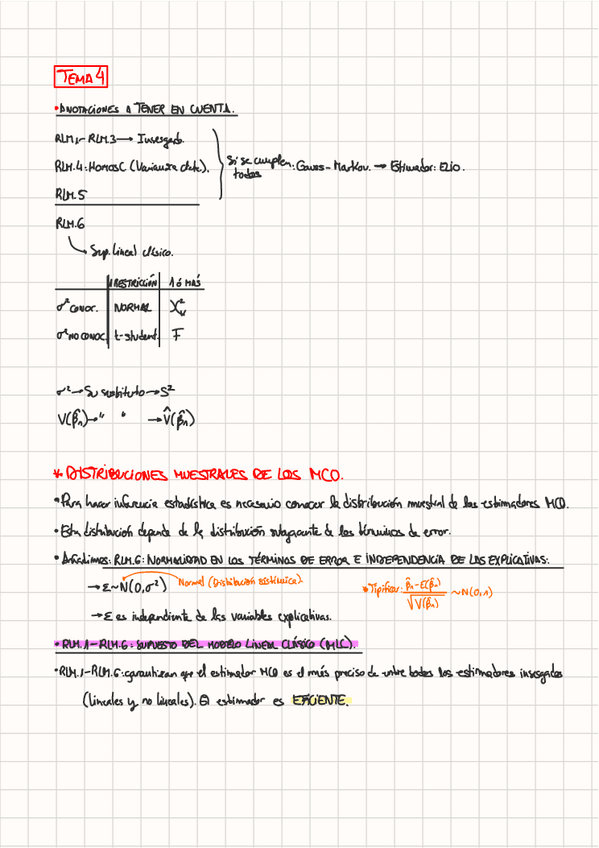 TEMA 4
• ANOTACIONES A TENER EN CUENTA.
RLM.1-RLM.3 → Insesgado.
RLM.4: HOMOSC (Varianza cte.).
Si se cumplen todos: Gauss-Markov. → Estimador: ELIO.
RLM.5
RLM.6
Sup. lineal clásico.
1 RESTRICCIÓN 1 ó MÁS
σ² CONOC. NORMAL χ²
σ² NO CONOC t-student F
σ² → Su sustituto → S²
V(β̂n) → " " → V̂(β̂n)
* DISTRIBUCIONES MUESTRALES DE LOS MCO.
• Para hacer inferencia estadística es necesario conocer la distribución muestral de los estimadores MCO.
• Esta distribución depende de la distribución subyacente de los términos de error.
• Añadimos: RLM.6: NORMALIDAD EN LOS TÉRMINOS DE ERROR E INDEPENDENCIA DE LAS EXPLICATIVAS:
→ Ɛ~N(0,σ²) Normal (Distribución estadística).
* Tipificar: β̂n-E(β̂n) / √V(β̂n) ~N(0,1)
→ Ɛ es independiente de las variables explicativas.
• RLM.1-RLM.6: SUPUESTO DEL MODELO LINEAL CLÁSICO (MLC).
• RLM.1-RLM.6: garantizan que el estimador MCO es el más preciso de entre todos los estimadores insesgados
(lineales y no lineales). El estimador es EFICIENTE.